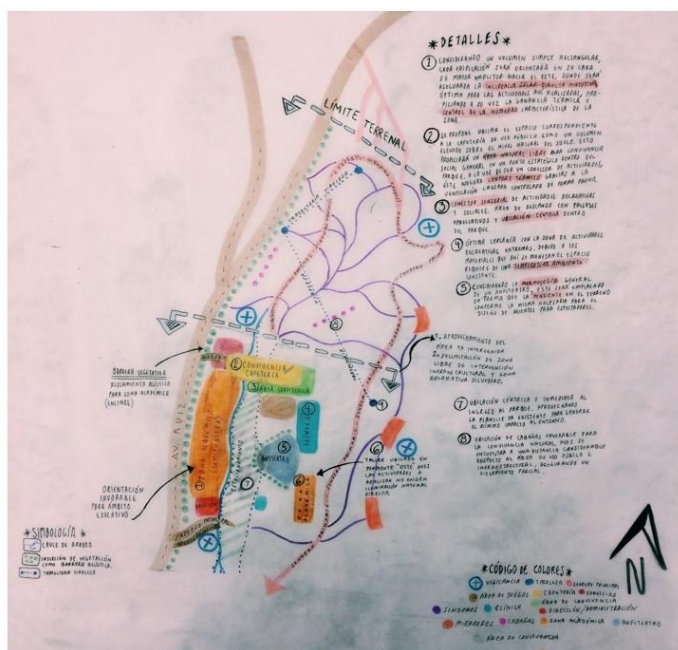 *DETALLES*
① CONSIDERANDO UN VOLUMEN SIMPLE RECTANGULAR,
CADA EDIFICACIÓN SERÁ ORIENTADA EN SU CARA
DE MAYOR AMPLITUD HACIA EL ESTE, DONDE SERÁ
ASEGURADA LA INCIDENCIA SOLAR DIRECTA MATUTINA,
ÓPTIMA PARA LAS ACTIVIDADES AHÍ REALIZADAS, PRO-
PICIANDO A SU VEZ LA GANANCIA TÉRMICA Y
CONTROL DE LA HUMEDAD CARACTERÍSTICA DE LA
ZONA.
② SE PROPONE UBICAR EL ESPACIO CORRESPONDIENTE
A LA CAFETERÍA DE USO PÚBLICO COMO UN VOLUMEN
ELEVADO SOBRE EL NIVEL NATURAL DEL SUELO. ESTO
PROPICIARÁ UN ÁREA NATURAL LIBRE PARA CONVIVENCIA
SOCIAL GENERAL EN UN PUNTO ESTRATÉGICO DENTRO DEL
PARQUE, A LA VEZ DE SER UN CONECTOR DE ACTIVIDADES,
ESTE MEJORA CONFORT TÉRMICO GRACIAS A LA
VENTILACIÓN CRUZADA CONTROLADA DE FORMA PASIVA.
③ CONECTOR SENSORIAL DE ACTIVIDADES RECREATIVAS
Y SOCIALES. ÁREA DE DESCANSO CON PAISAJES
APRECIATIVOS Y UBICACIÓN CÉNTRICA DENTRO
DEL PARQUE.
④ ÓPTIMA CERCANÍA CON LA ZONA DE ACTIVIDADES
RECREATIVAS EXTREMAS. DEBIDO A LOS
MATERIALES QUE AHÍ SE MANEJAN EL ESPACIO
REQUIERE DE UNA TEMPERATURA AMBIENTE
CONSTANTE.
⑤ CONSIDERANDO LA MORFOLOGÍA GENERAL
DE UN ANFITEATRO, ESTE SERÁ EMPLAZADO
DE FORMA QUE LA PENDIENTE EN EL TERRENO
CONFORME LA MISMA NECESARIA PARA EL
DISEÑO DE ASIENTOS PARA ESPECTADORES.
LÍMITE TERRENAL
TIROLESA
⑧
APROVECHAMIENTO DEL
ÁREA YA INTERVENIDA
DELIMITACIÓN DE ZONA
LIBRE DE INTERVENCIÓN
INFRAESTRUCTURAL Y ZONA
RECREATIVA SILVESTRE.
⑦ UBICACIÓN CÉNTRICA E INMEDIATA AL
INGRESO AL PARQUE, APROVECHANDO
LA PLANICIE YA EXISTENTE PARA GENERAR
EL MÍNIMO IMPACTO AL ENTORNO.
⑧ UBICACIÓN DE CABAÑAS FAVORABLE PARA
LA CONVIVENCIA NATURAL, PUES SE
ENCUENTRA A UNA DISTANCIA CONSIDERABLE
RESPECTO AL ÁREA DE USO PÚBLICO E
INFRAESTRUCTURAL, ASEGURANDO UN
AISLAMIENTO PARCIAL.
BARRERA VEGETATIVA
AISLAMIENTO ACÚSTICO
PARA ZONA ACADÉMICA
(ENCINOS)
② CONVIVENCIA
CAFETERÍA
③ ÁREA CONVIVENCIA
④
CLÍNICA
⑤
ANFITEATRO
⑥
TALLER UBICADO EN
PENDIENTE ESTE PUES
LAS ACTIVIDADES A
REALIZAR NO EXIGEN
ILUMINACIÓN NATURAL
DIRECTA.
① ZONA ACADÉMICA
AV. RUIZ
ESTACIONAMIENTO
⑦
ORIENTACIÓN
FAVORABLE
PARA ÁMBITO
EDUCATIVO
*SIMBOLOGÍA*
CAUCE DE ARROYO
INSERCIÓN DE VEGETACIÓN
COMO BARRERA ACÚSTICA.
TRAYECTORIA TIROLESA
N
*CÓDIGO DE COLORES*
VIGILANCIA TIROLESA SENDERO PRINCIPAL
ÁREA DE JUEGOS CAFETERÍA SERVICIOS
SENDEROS CLÍNICA ÁREA DE CONVIVENCIA
DIRECCIÓN/ADMINISTRACIÓN
MIRADORES CABAÑAS ZONA ACADÉMICA ANFITEATRO
ÁREA DE CONVIVENCIA